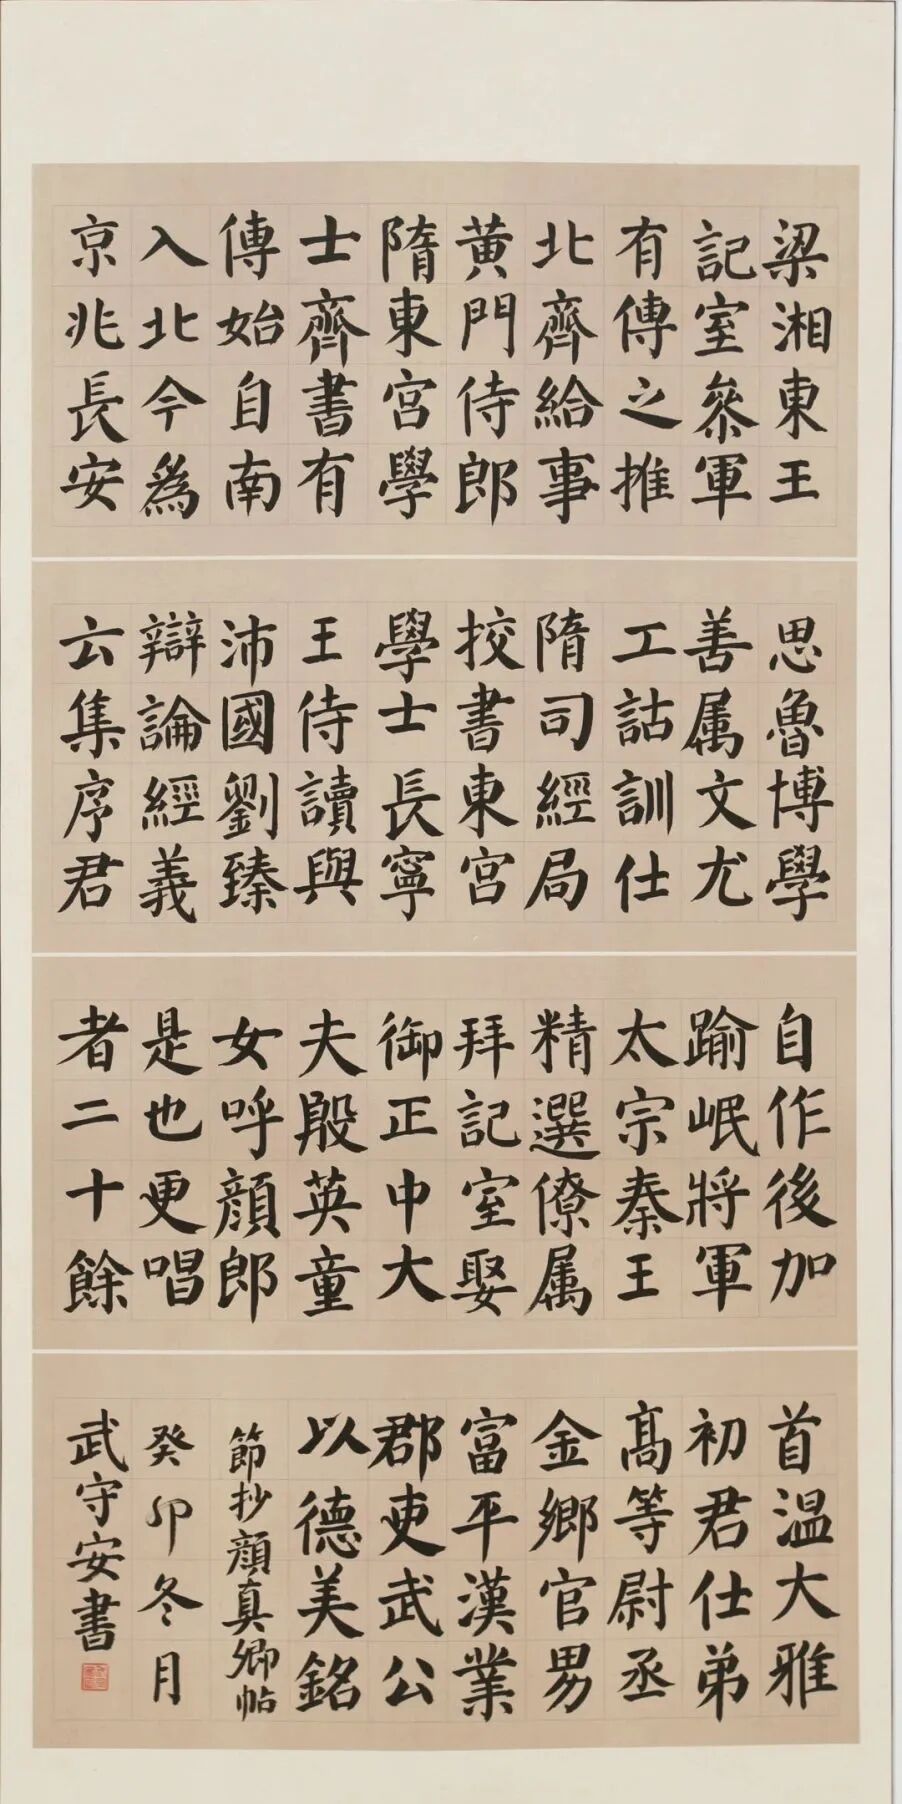 梁湘東王
記室叅軍
有傳之推
北齊給事
黄門侍郎
隋東宮學
士齊書有
傳始自南
入北今為
京兆長安
思魯博學
善属文尤
工詁訓仕
隋司經局
挍書東宮
學士長寧
王侍讀與
沛國劉臻
辯論經義
云集序君
自作後加
踰岷將軍
太宗秦王
精選僚属
拜記室娶
御正中大
夫殷英童
女呼顔郎
是也更唱
者二十餘
首温大雅
初君仕弟
髙等尉丞
金鄉官男
富平漢業
郡吏武公
以德美銘
節抄顔真卿帖
癸卯冬月
武守安書